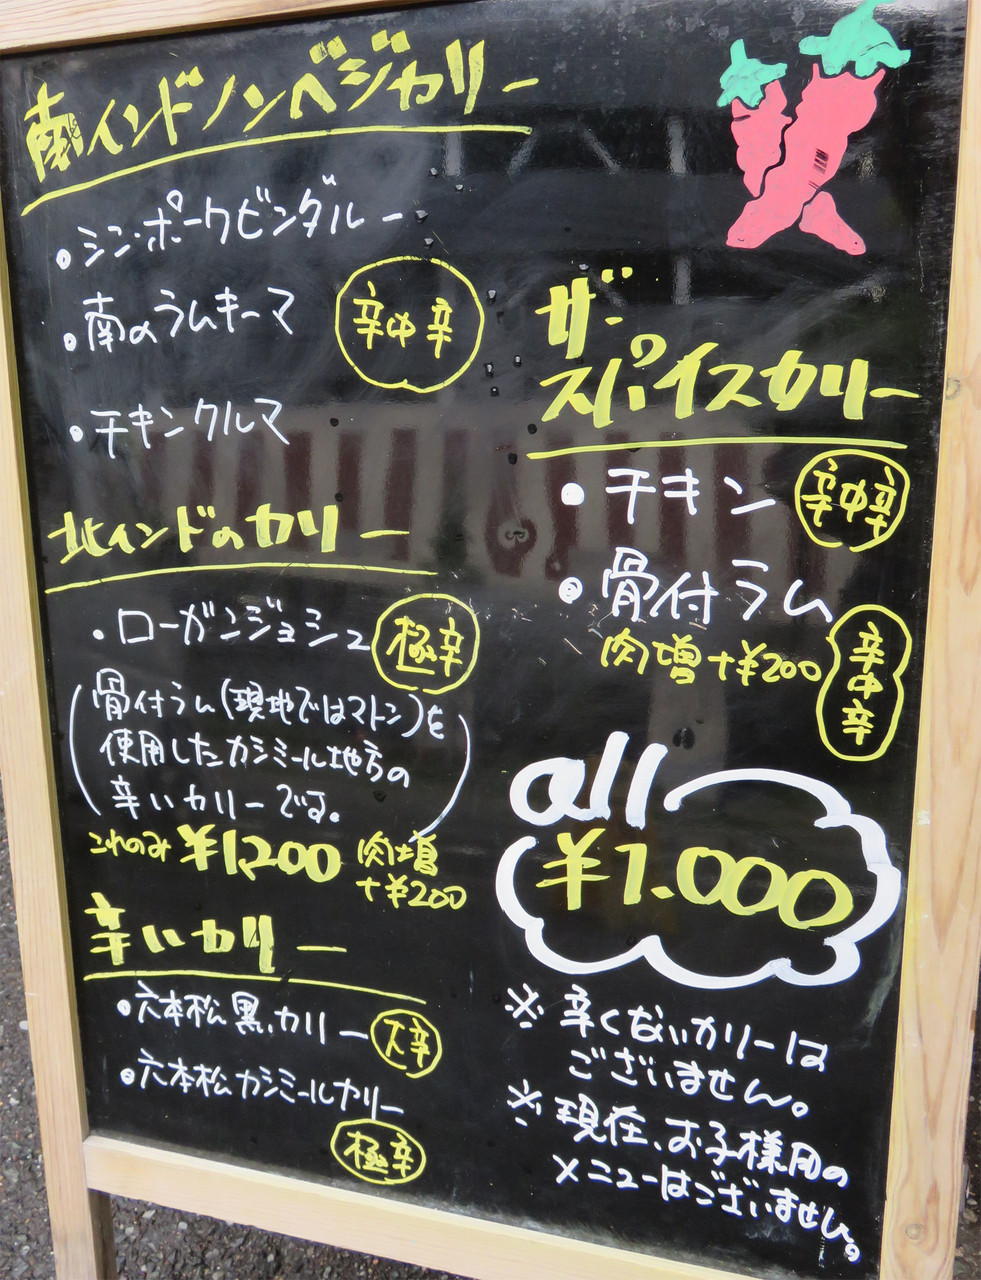 南インドノンベジカリー
・シン・ポークビンダルー
・南のラムキーマ
辛中辛
・チキンクルマ
北インドのカリー
・ローガンジョシュ
極辛
(骨付ラム(現地ではマトン)を
使用したカシミール地方の
辛いカリーです。)
これのみ ¥1,200 肉増
+¥200
辛いカリー
・六本松黒カリー 大辛
・六本松カシミールカリー
極辛
ザ・の
スパイスカリー
・チキン 辛中辛
・骨付ラム
肉増+¥200
辛中辛
all
¥1.000
※辛くないカリーは
ございません。
※現在、お子様用の
メニューはございません。